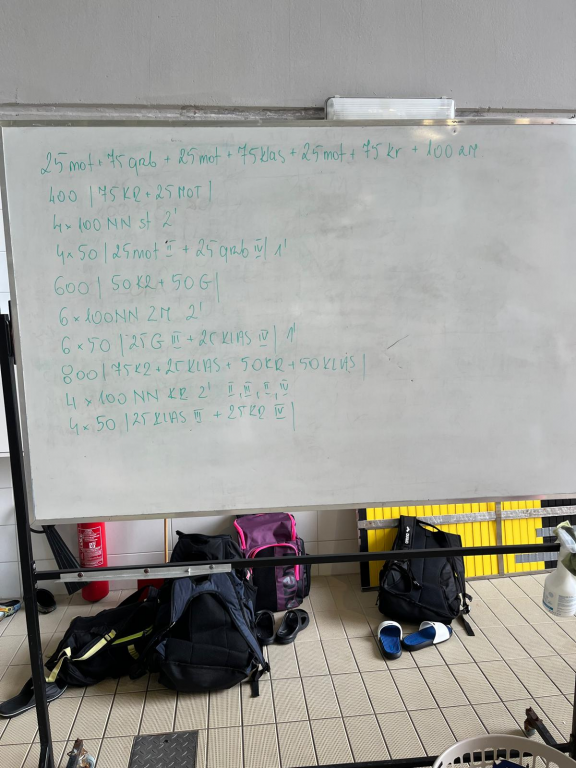 25mot+75grzb + 25mot+75klas+25mot+75kr +100 zm
400 |75KR+25MOT|
4×100NN st 2'
4×50 |25mot II + 25grzb IV| 1'
600 | 50KR+50G|
6×100NN ZM 2'
6×50 |25G III+25KLAS IV| 1'
800 |75KR+25KLAS+50KR+50KLAS|
4×100 NN KR 2' II, III, II, IV
4×50 |25KLAS II + 25KR IV|